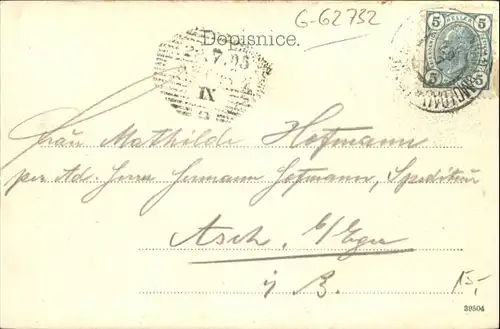 G-62732
Dopisnice.
5 HELLER 5
5 5
7.05
IX
Frau Mathilde Hofmann
per Ad. Herrn Hermann Hofmann, Spediteur
Asch, b/Eger
i/B.
15,-
39504